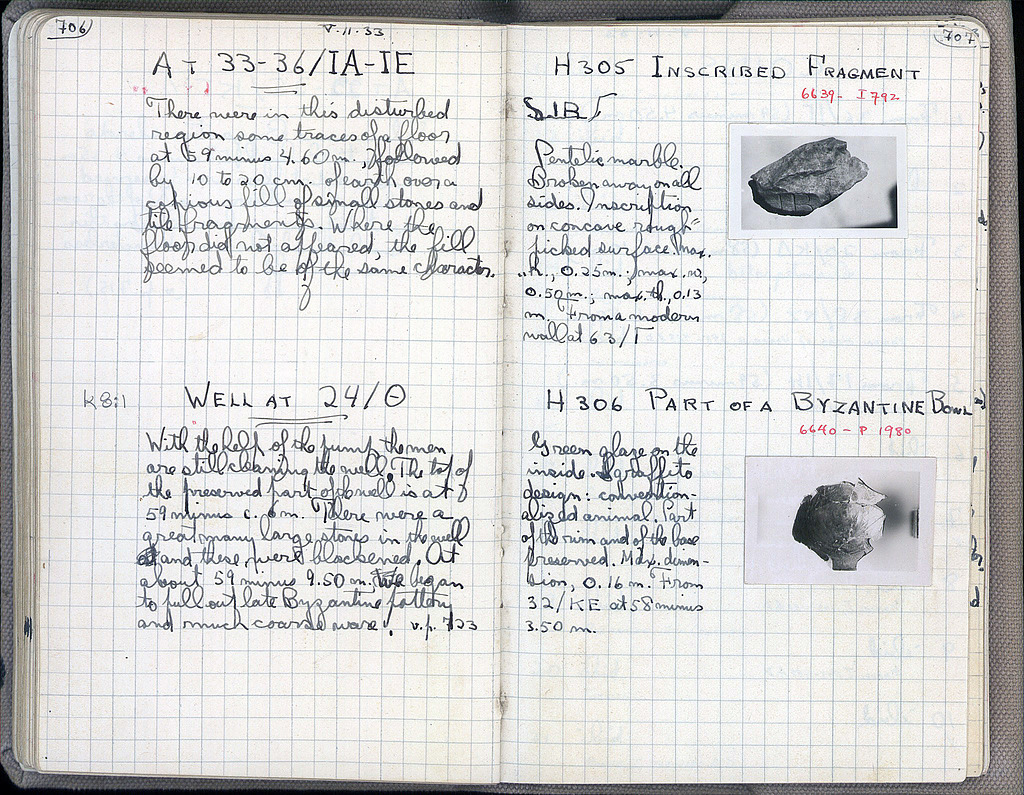 706
V.11.33
AT 33-36/IA-IE
There were in this disturbed
region some traces of a floor
at 59 minus 4.60 m., followed
by 10 to 20 cm. of earth over a
copious fill of small stones and
tile fragments. Where the
floor did not appeared, the fill
seemed to be of the same character.
K8:1
WELL AT 24/Θ
With the help of the pump the men
are still cleaning the well. The top of
the preserved part of the well is at
59 minus c. 6 m. There were a
great many large stones in the well
and these were blackened. At
about 59 minus 9.50 m. we began
to pull out late Byzantine pottery
and much coarse ware. v.p. 723
707
H305 INSCRIBED FRAGMENT
6639 - I 792
Pentelic marble.
Broken away on all
sides. Inscription
on concave rough
picked surface. Max.
h., 0.25 m.; max. w.,
0.50 m.; max. th., 0.13
m. From a modern
wall at 63/Γ
H 306 PART OF A BYZANTINE BOWL
6640 - P 1980
Green glaze on the
inside. Sgraffito
design: convention-
alized animal. Part
of the rim and of the base
preserved. Max. dimen-
sion, 0.16 m. From
32/KE at 58 minus
3.50 m.